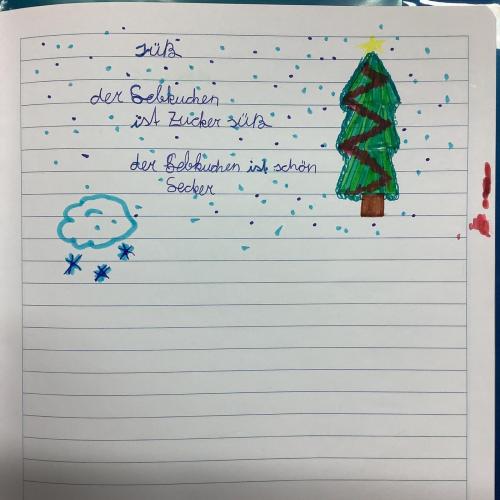 süß
der Lebkuchen
ist Zucker süß
der Lebkuchen ist schön
Lecker